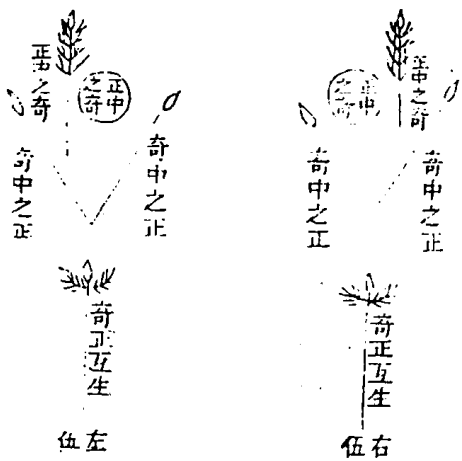 正中之奇
正中
之奇
奇中之正
奇中之正
奇正互生
右伍
正中
之奇
正中之奇
奇中之正
奇中之正
奇正互生
左伍